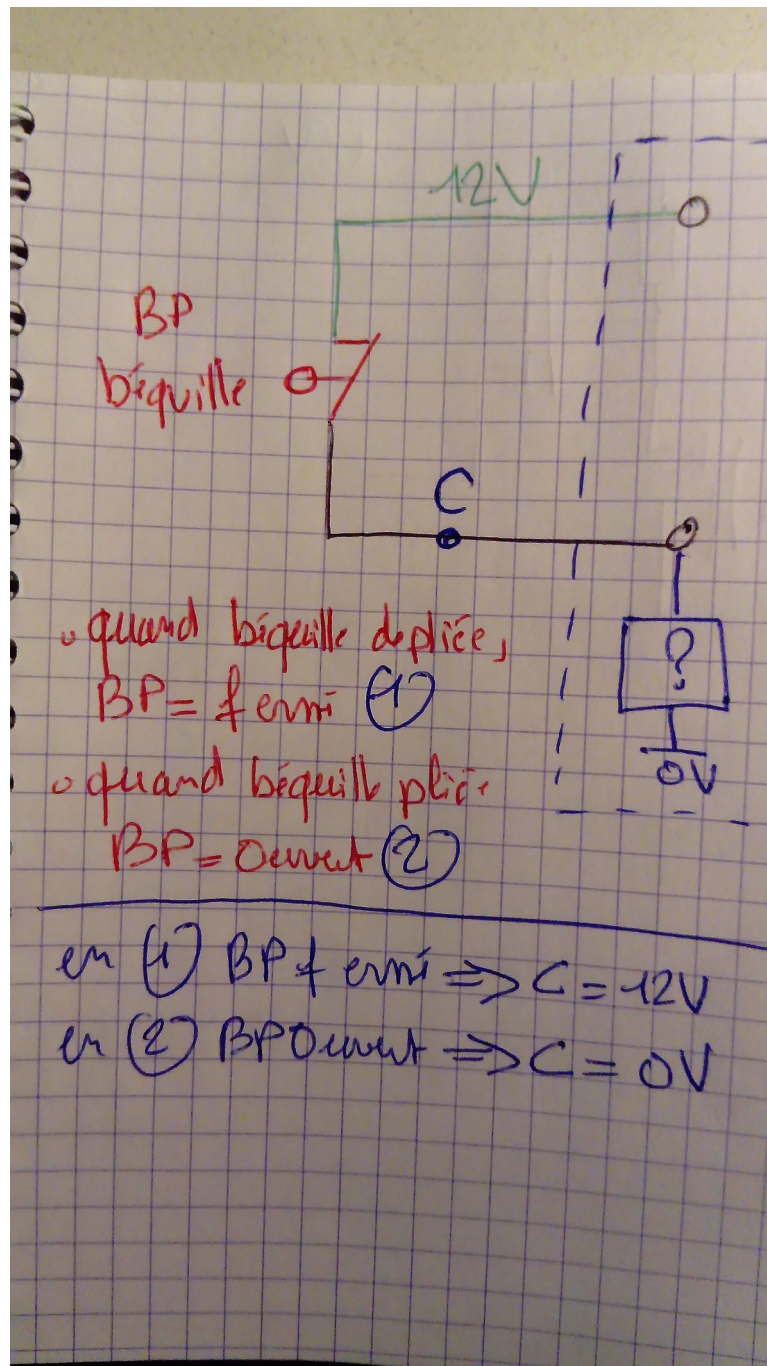 12V
BP
béquille
C
?
0V
• quand béquille depliée,
BP = fermé (1)
• quand béquill pliée
BP = Ouvert (2)
en (1) BP fermé => C = 12V
en (2) BP Ouvert => C = 0V